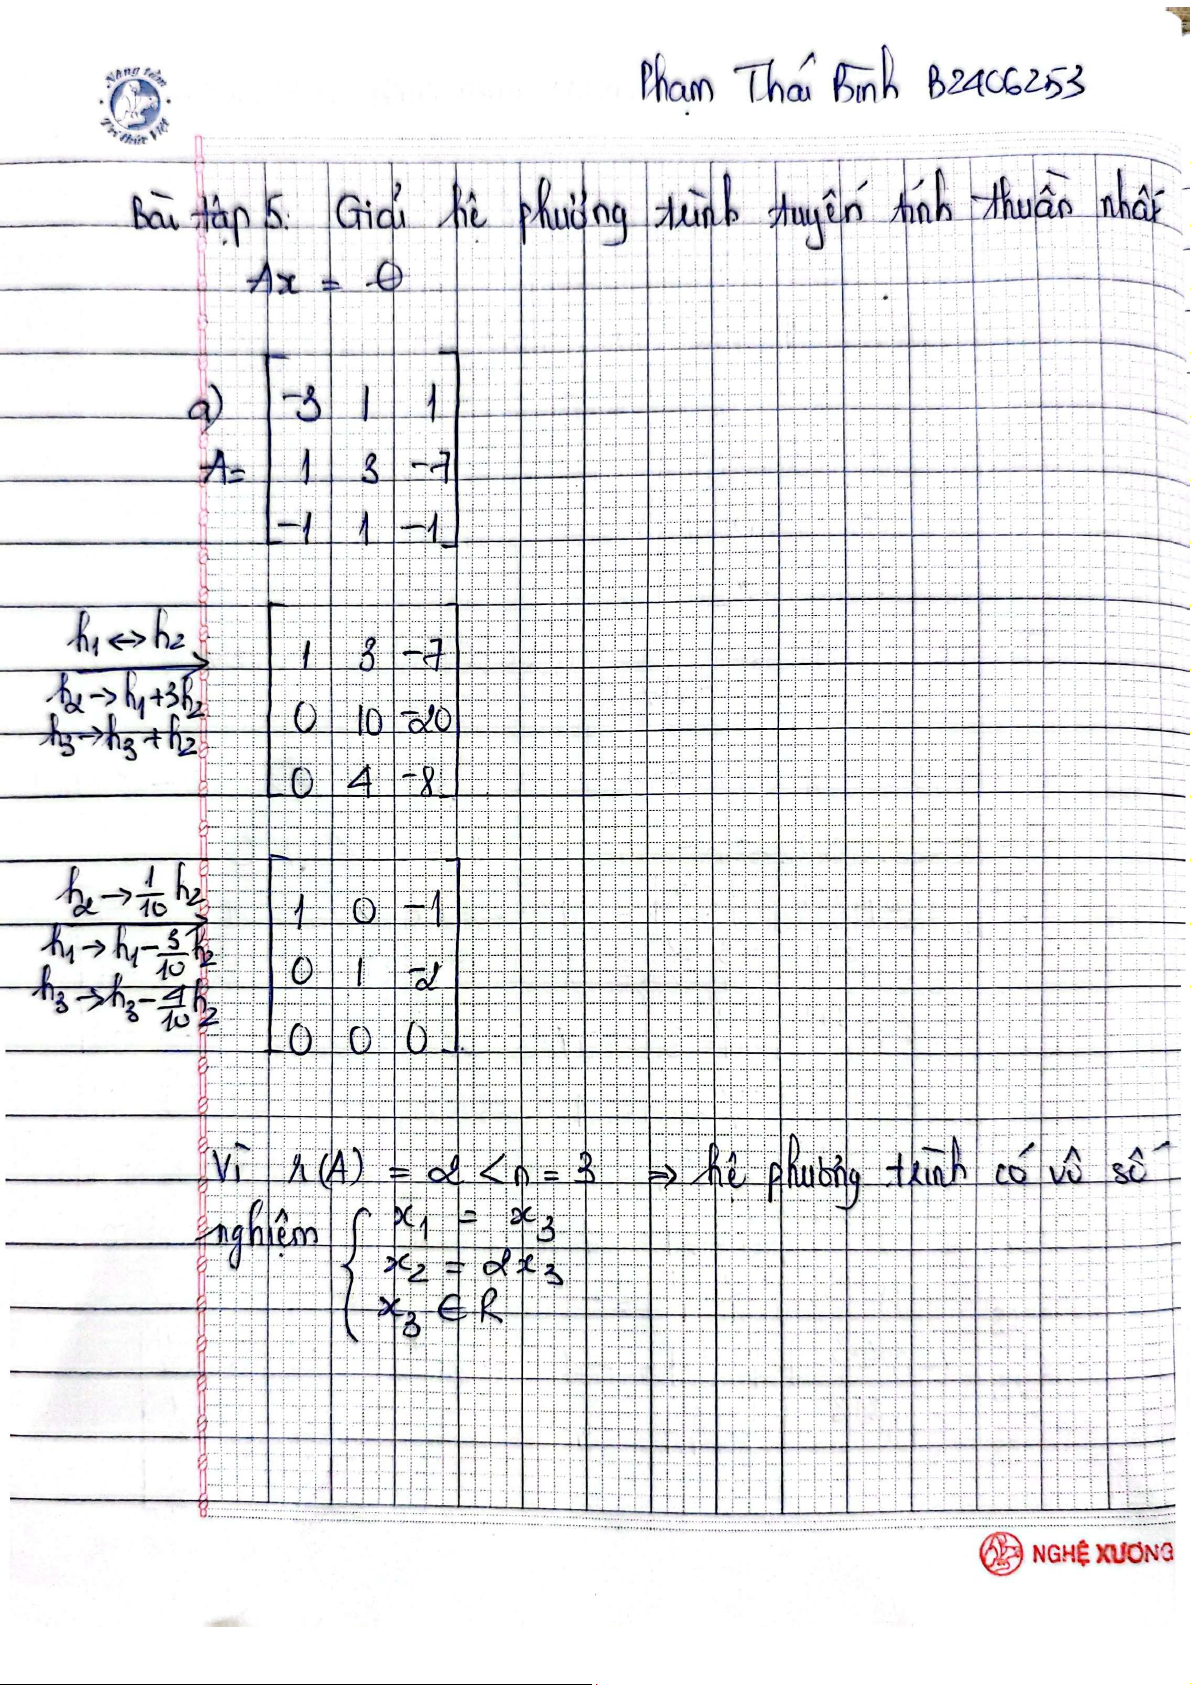 Nâng tầm
Tri thức Việt
Phạm Thái Bình B2406253
Bài tập 5. Giải hệ phương trình tuyến tính thuần nhất
Ax = θ
a)
A= [ -3 1 1
1 3 -7
-1 1 -1 ]
h₁ ↔ h₂
h₂ → h₁+3h₂
h₃ → h₃+h₂
[ 1 3 -7
0 10 -20
0 4 -8 ]
h₂ → 1/10 h₂
h₁ → h₁ - 3/10 h₂
h₃ → h₃ - 4/10 h₂
[ 1 0 -1
0 1 -2
0 0 0 ]
Vì r(A) = 2 < n = 3 ⇒ hệ phương trình có vô số
nghiệm { x₁ = x₃
x₂ = 2x₃
x₃ ∈ R
NGHỆ XƯƠNG